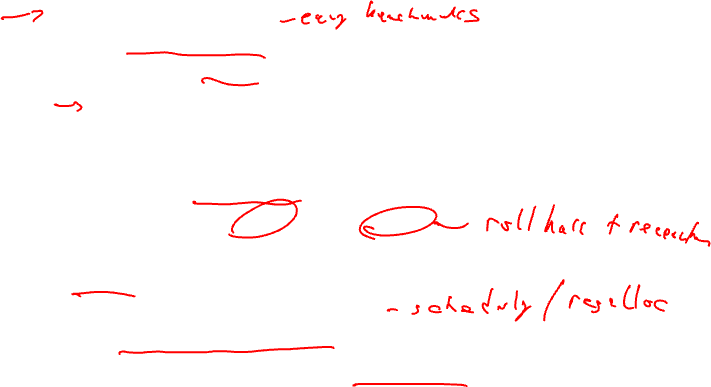 - easy benchmarks
roll back + reexecution
- scheduling / regalloc